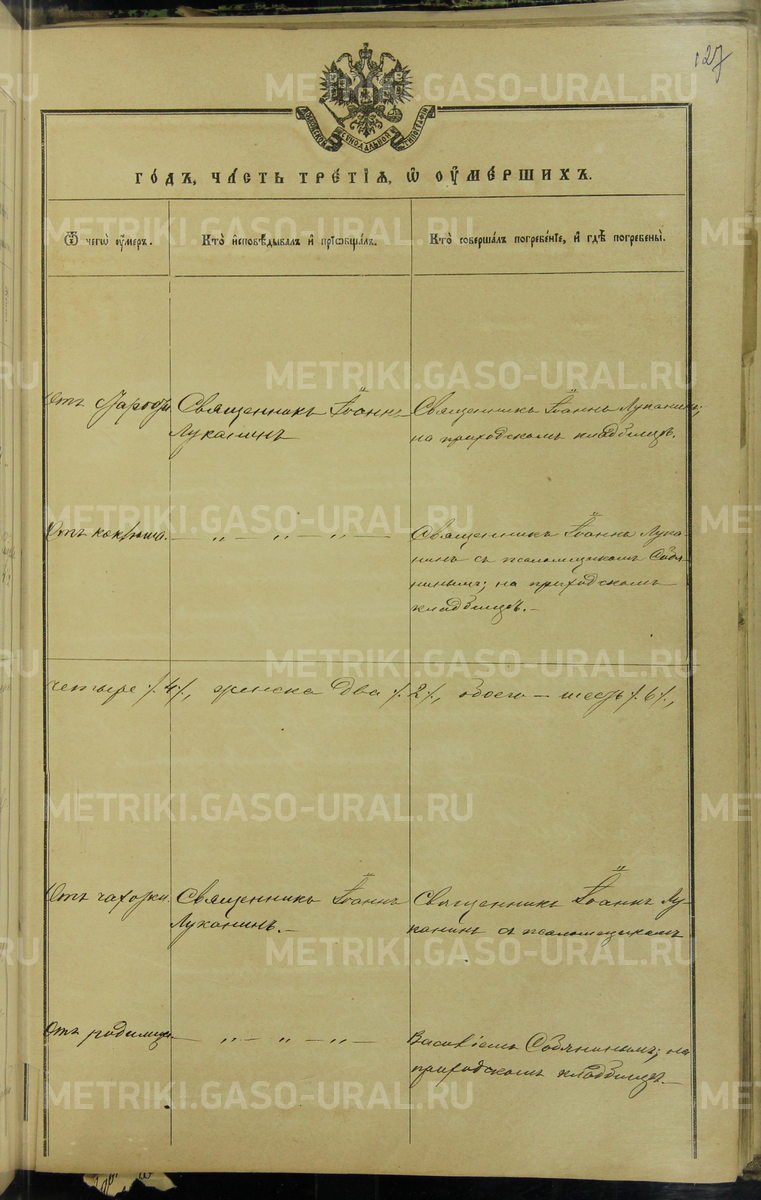 127
МОСКОВСКОЙ СѴНОДАЛЬНОЙ ТИПОГРАФІИ
ГОДЪ, ЧАСТЬ ТРЕТІѦ, Ѡ ОУМЕРШИХЪ.
Ѿ чегѡ оумеръ.
Кто исповѣдывалъ и прїѡбщалъ.
Кто совершалъ погребенїе, и гдѣ погребены.
Отъ
Священникъ Іоаннъ
Луканинъ
Священникъ Іоаннъ Луканинъ;
на приходскомъ кладбищѣ.
Отъ коклюша.
— „ — „ — „ —
Священникъ Іоаннъ Лука-
нинъ съ псаломщикомъ Собя-
нинымъ; на приходскомъ
кладбищѣ. —
четыре /.4/., женска два /.2/., обоего — шесть /.6/.,
Отъ чахотки.
Священникъ Іоаннъ
Луканинъ. —
Священникъ Іоаннъ Лу-
канинъ съ псаломщикомъ
Отъ родимца
— „ — „ — „ —
Собянинымъ; на
приходскомъ кладбищѣ. —
METRIKI.GASO-URAL.RU